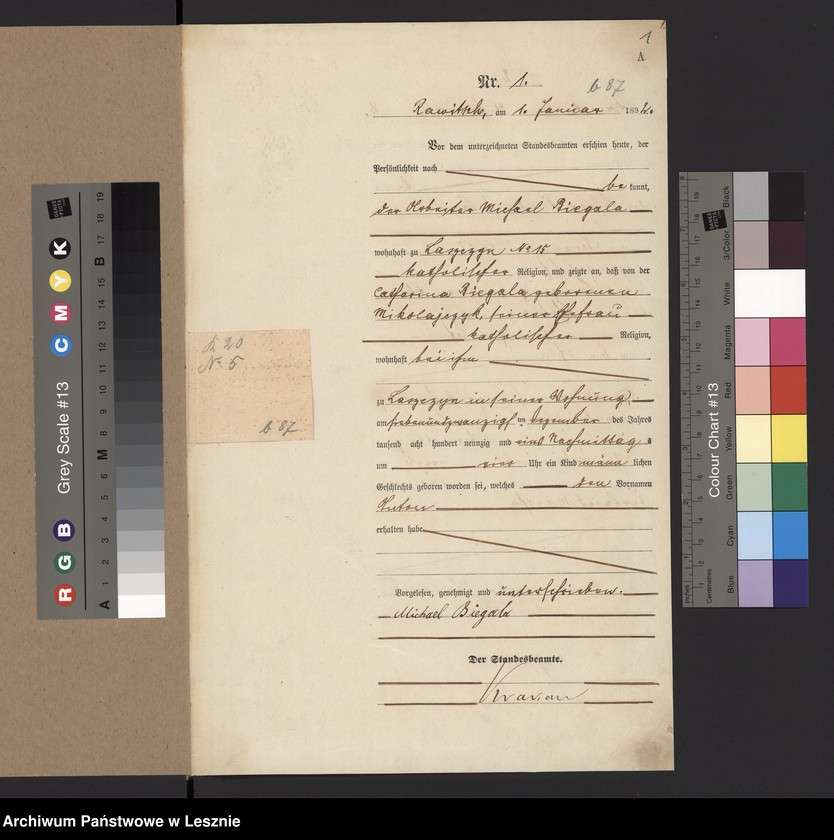 1
A
Nr. 1.
b 87
Rawitsch, am 1. Januar 1892.
Vor dem unterzeichneten Standesbeamten erschien heute, der
Persönlichkeit nach
be kannt,
der Arbeiter Michael Biegala
wohnhaft zu Laszczyn No 15
katholischer Religion, und zeigte an, daß von der
Catharina Biegala geborenen
Mikolajczyk, seiner Ehefrau
katholischer Religion,
wohnhaft bei ihm
zu Laszczyn in seiner Wohnung
am siebenundzwanzigsten Dezember des Jahres
tausend acht hundert neunzig und eins Nachmittags
um vier Uhr ein Kind männ lichen
Geschlechts geboren worden sei, welches den Vornamen
Anton
erhalten habe
Vorgelesen, genehmigt und unterschrieben.
Michael Biegala
Der Standesbeamte.
20
No 5
b 87
Grey Scale #13
A 1 2 3 4 5 6 M 8 9 10 11 12 13 14 15 B 17 18 19
R G B C M Y K
Colour Chart #13
Blue Cyan Green Yellow Red Magenta White 3/Color Black
Inches
Centimetres
DANES PICTA
Archiwum Państwowe w Lesznie